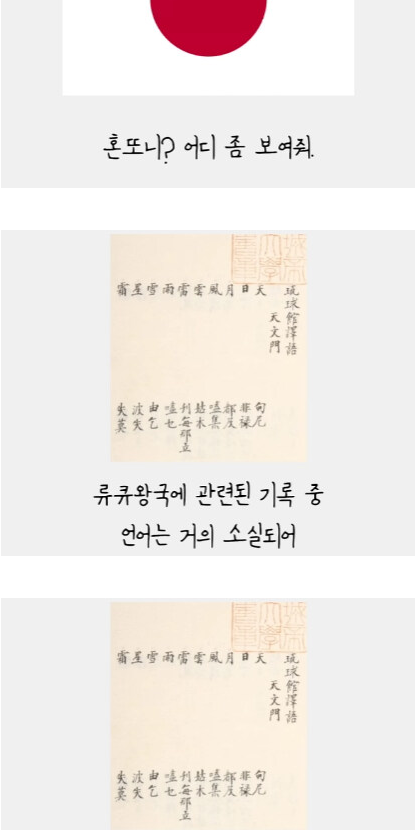 혼또니? 어디 좀 보여줘.
琉球館譯語
天文門
天 
日 非祿
月 都及
風 嗑集
雲 姑木
雷 每那立
雨 嗑乜
雪 由乞
星 波失
霜 失莫
류큐왕국에 관련된 기록 중
언어는 거의 소실되어
琉球館譯語
天文門
天 
日 非祿
月 都及
風 嗑集
雲 姑木
雷 每那立
雨 嗑乜
雪 由乞
星 波失
霜 失莫